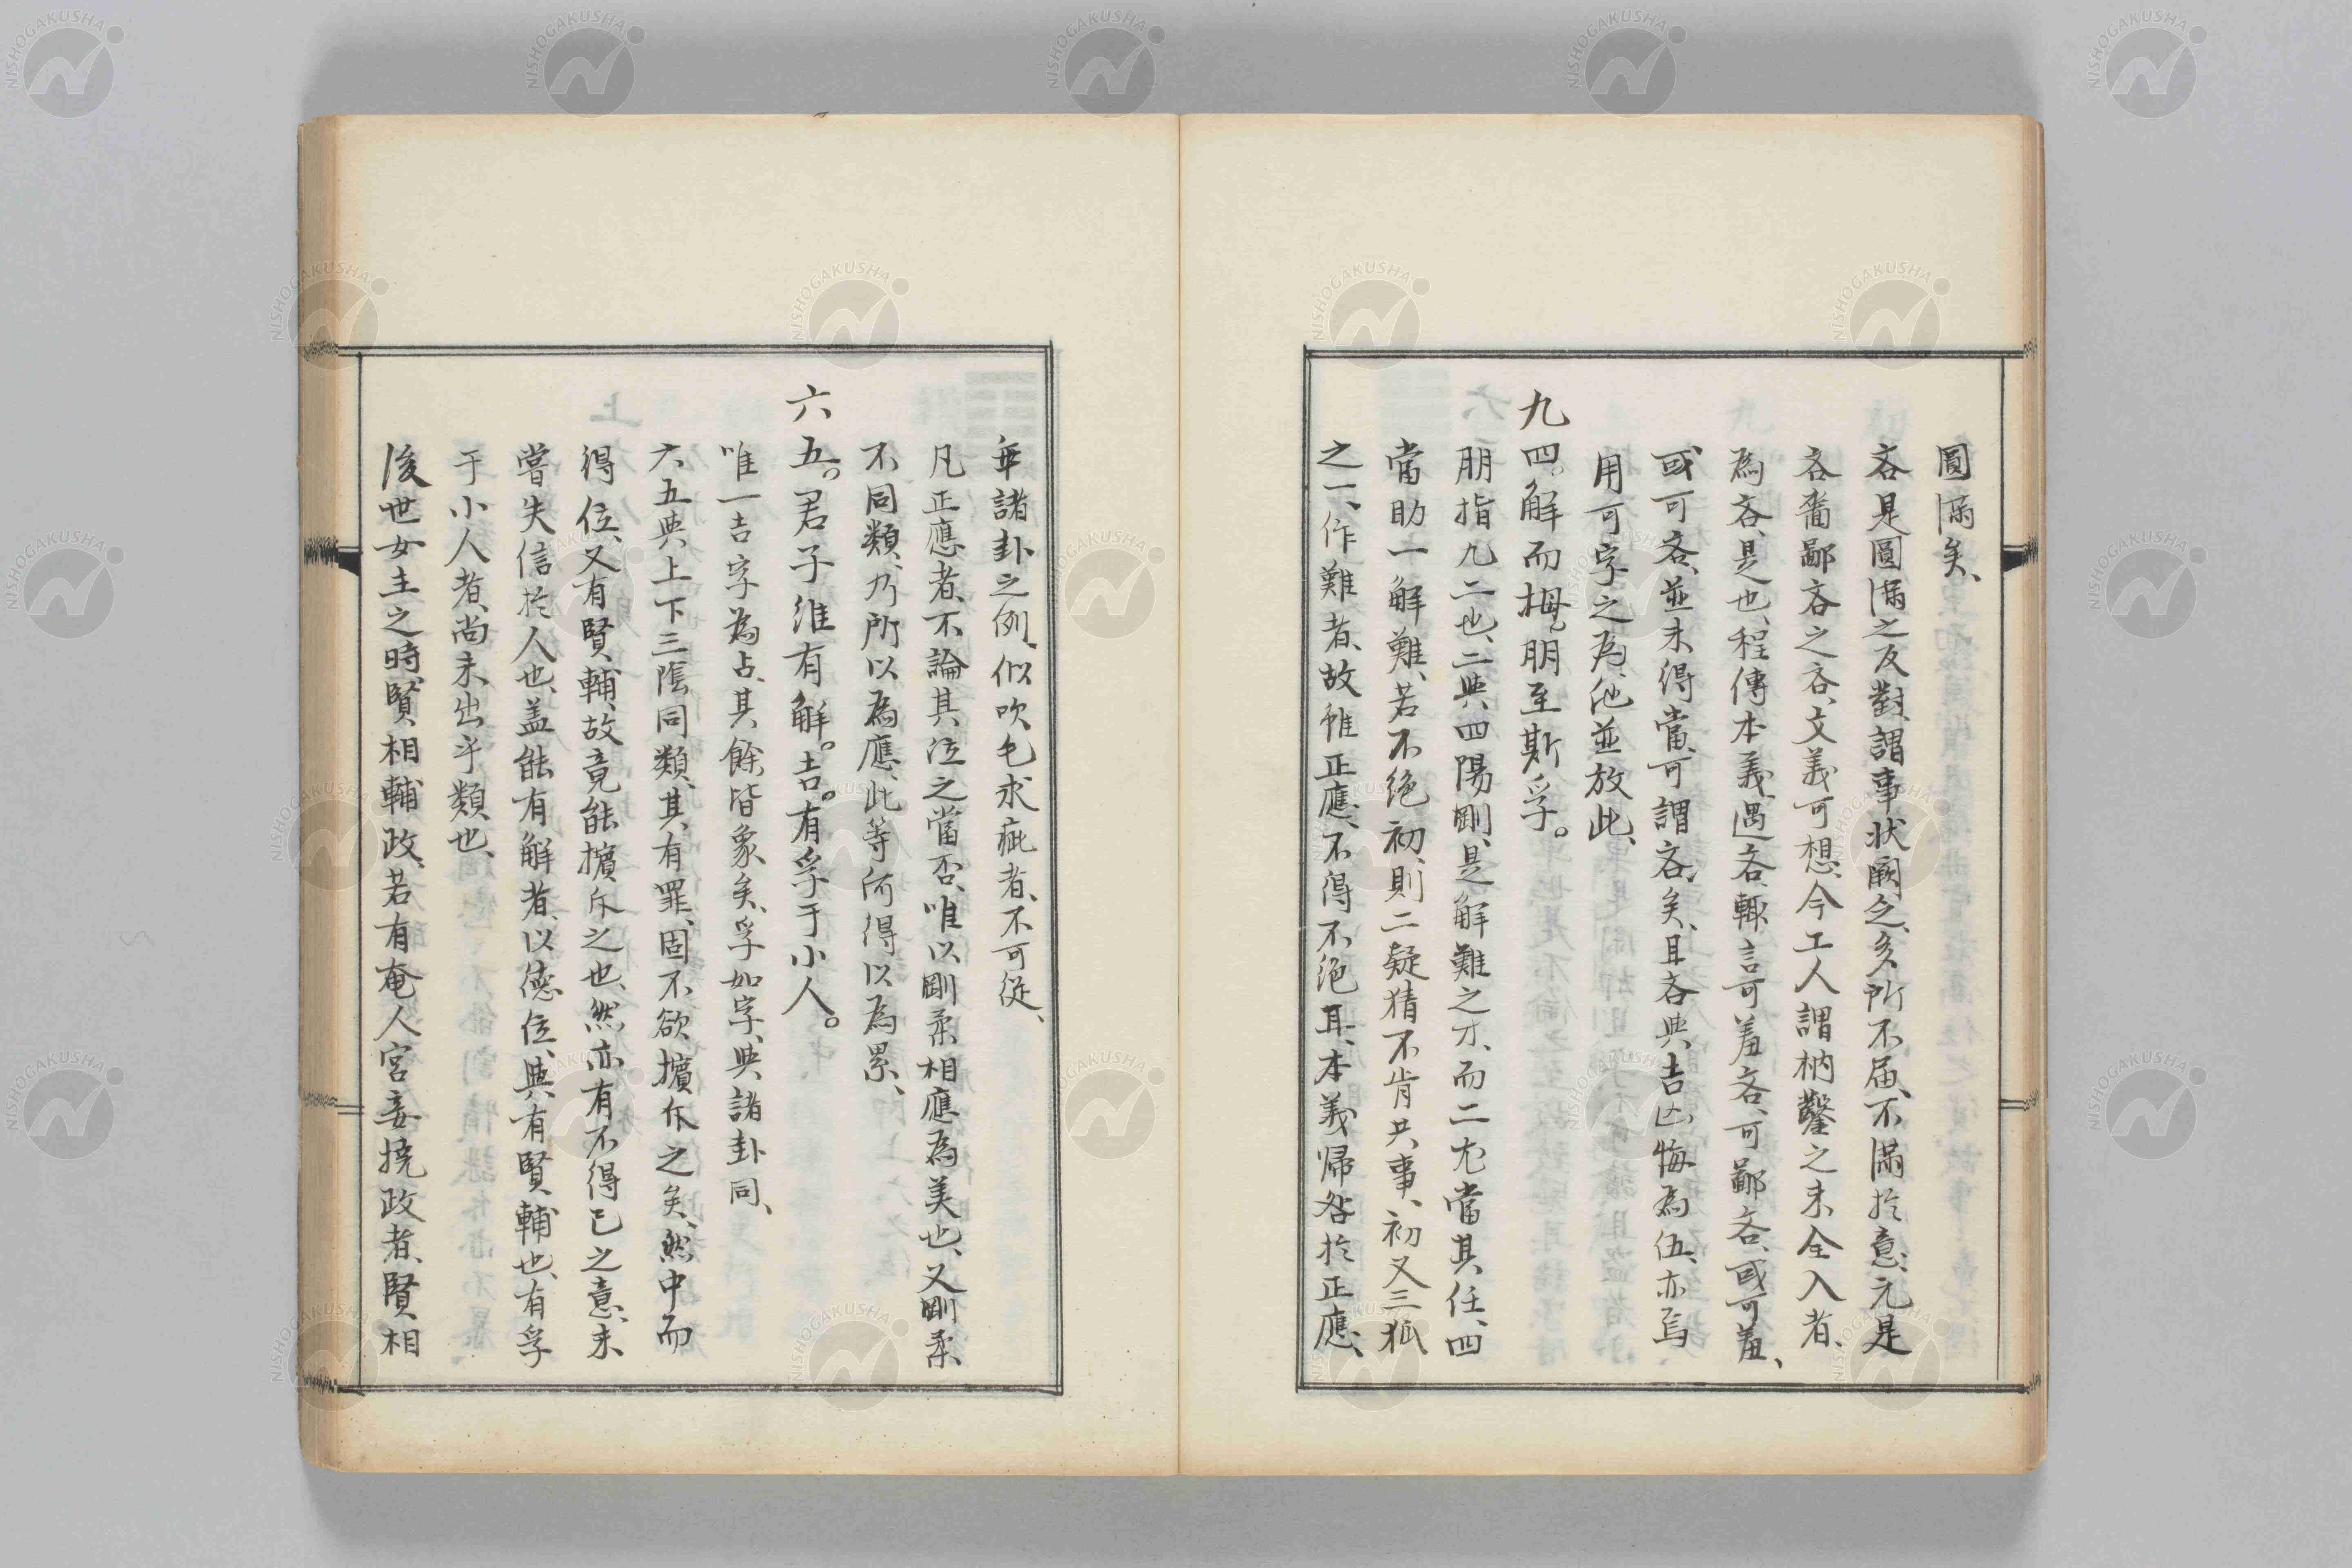 圓滿矣、
吝是圓滿之反對、謂事状闕乏、多所不届、不滿於意、元是
吝嗇鄙吝之吝、文義可想、今工人謂枘鑿之未全入者、
為吝、是也、程傳本義、遇吝、輙言可羞吝、可鄙吝、或可羞、
或可吝、並未得當、可謂吝矣、且吝與吉凶悔為伍、亦焉
用可字之為、他並放此、
九四。解而拇。朋至斯孚。
朋指九二也、二與四陽剛、是解難之才、而二尤當其任、四
當助一解難、若不絶初、則二疑猜不肯共事、初又三狐
之一、作難者、故雖正應、不得不絶耳、本義帰咎於正應、
乖諸卦之例、似吹毛求疵者、不可從、
凡正應者、不論其位之當否、唯以剛柔相應為美也、又剛柔
不同類、乃所以為應、此等何得以為累、
六五。君子維有解。吉。有孚于小人。
唯一吉字為占、其餘皆象矣、孚如字、與諸卦同、
六五與上下三陰同類、其有罪、固不欲擯斥之矣、然中而
得位、又有賢輔、故竟能擯斥之也、然亦有不得已之意、未
嘗失信於人也、盖能有解者、以德位、與有賢輔也、有孚
于小人者、尚未出乎類也、
後世女主之時、賢相輔政、若有奄人宮妾撓政者、賢相
NISHOGAKUSHA